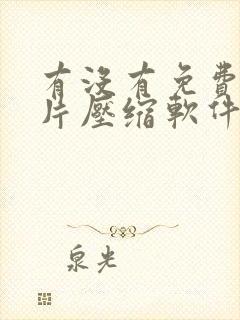 有没有免費
片壓缩軟件
泉光